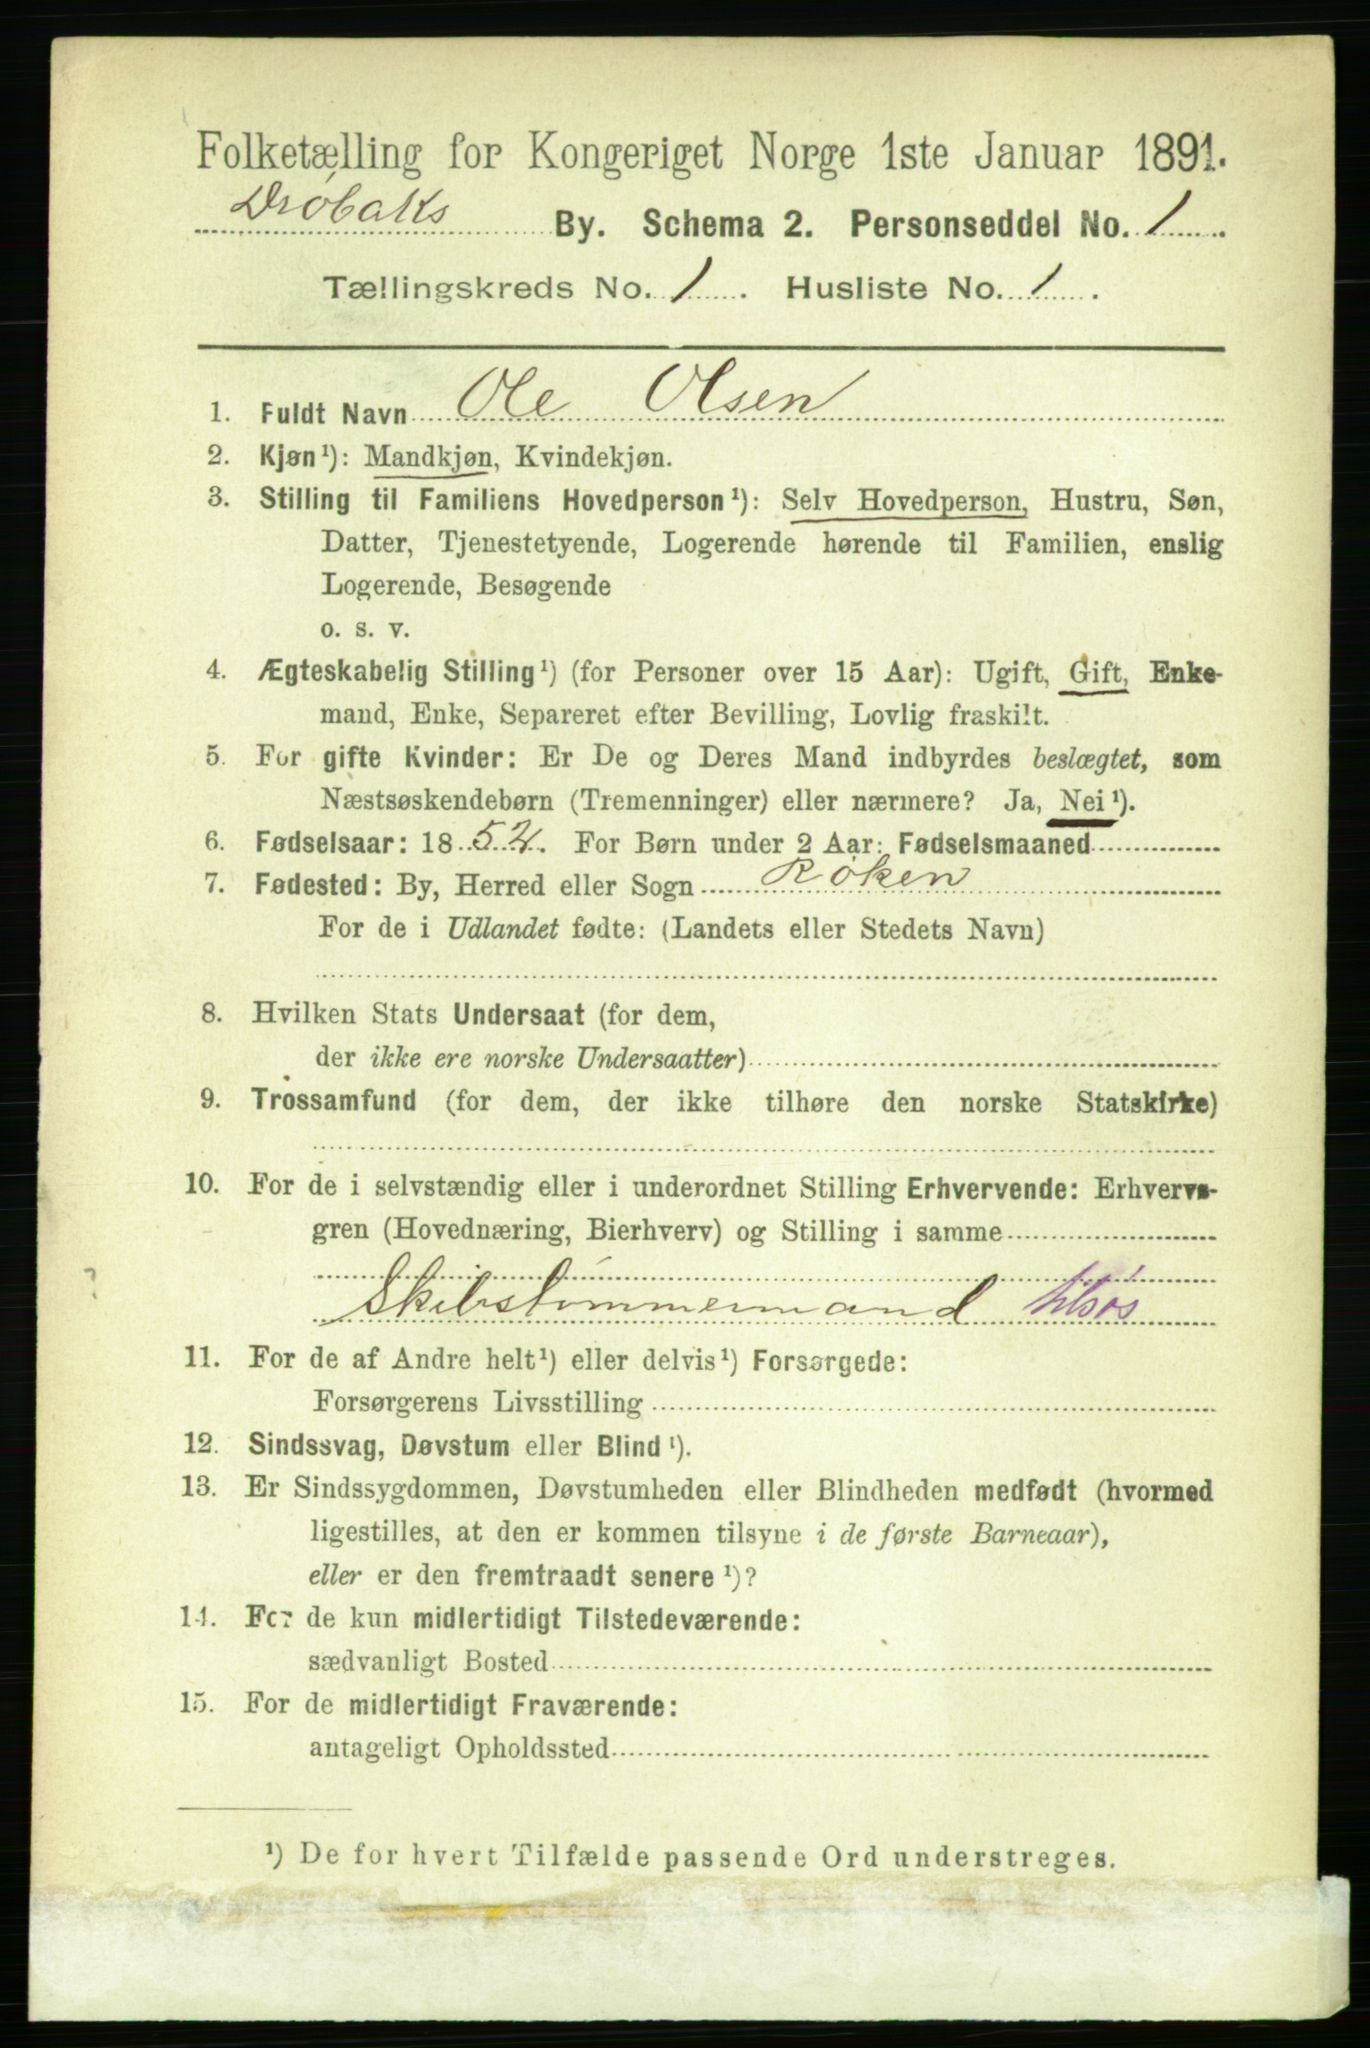 Folketælling for Kongeriget Norge 1ste Januar 1891.
Drøbaks By. Schema 2. Personseddel No. 1
Tællingskreds No. 1. Husliste No. 1.
1. Fuldt Navn Ole Olsen
2. Kjøn¹): Mandkjøn, Kvindekjøn.
3. Stilling til Familiens Hovedperson¹): Selv Hovedperson, Hustru, Søn,
Datter, Tjenestetyende, Logerende hørende til Familien, enslig
Logerende, Besøgende
o. s. v.
4. Ægteskabelig Stilling¹) (for Personer over 15 Aar): Ugift, Gift, Enke-
mand, Enke, Separeret efter Bevilling, Lovlig fraskilt.
5. For gifte Kvinder: Er De og Deres Mand indbyrdes beslægtet, som
Næstsøskendebørn (Tremenninger) eller nærmere? Ja, Nei¹).
6. Fødselsaar: 1852. For Børn under 2 Aar: Fødselsmaaned
7. Fødested: By, Herred eller Sogn Røken
For de i Udlandet fødte: (Landets eller Stedets Navn)
8. Hvilken Stats Undersaat (for dem,
der ikke ere norske Undersaatter)
9. Trossamfund (for dem, der ikke tilhøre den norske Statskirke)
10. For de i selvstændig eller i underordnet Stilling Erhvervende: Erhvervs-
gren (Hovednæring, Bierhverv) og Stilling i samme
Skibstømmermand tilsøs
11. For de af Andre helt¹) eller delvis¹) Forsørgede:
Forsørgerens Livsstilling
12. Sindssvag, Døvstum eller Blind¹).
13. Er Sindssygdommen, Døvstumheden eller Blindheden medfødt (hvormed
ligestilles, at den er kommen tilsyne i de første Barneaar),
eller er den fremtraadt senere¹)?
14. For de kun midlertidigt Tilstedeværende:
sædvanligt Bosted
15. For de midlertidigt Fraværende:
antageligt Opholdssted
¹) De for hvert Tilfælde passende Ord understreges.
?